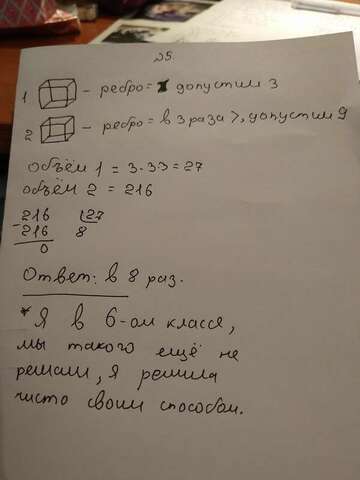 29.
1 - ребро = допустим 3
2 - ребро = в 3 раза >, допустим 9
объём 1 = 3·3·3 = 27
объём 2 = 216
-216 | 27
216 8
0
Ответ: в 8 раз.
* Я в 6-ом классе,
мы такого ещё не
решали, я решила
чисто своим способом.